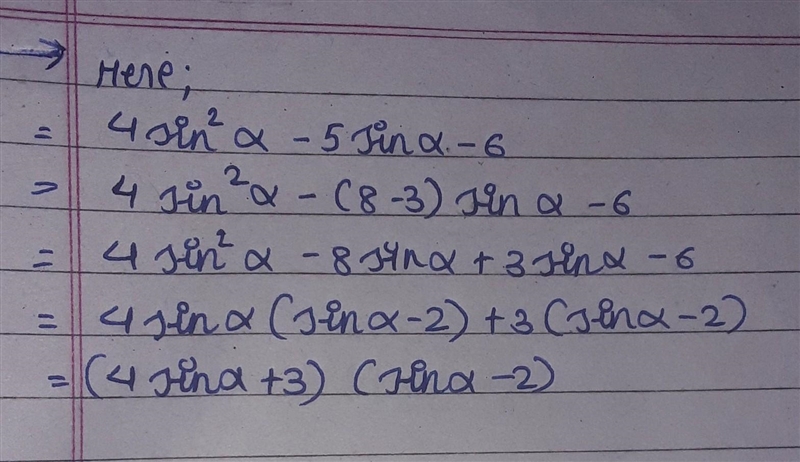 Here;
= 4 sin² α - 5 sin α - 6
= 4 sin² α - (8 - 3) sin α - 6
= 4 sin² α - 8 sin α + 3 sin α - 6
= 4 sin α (sin α - 2) + 3 (sin α - 2)
= (4 sin α + 3) (sin α - 2)